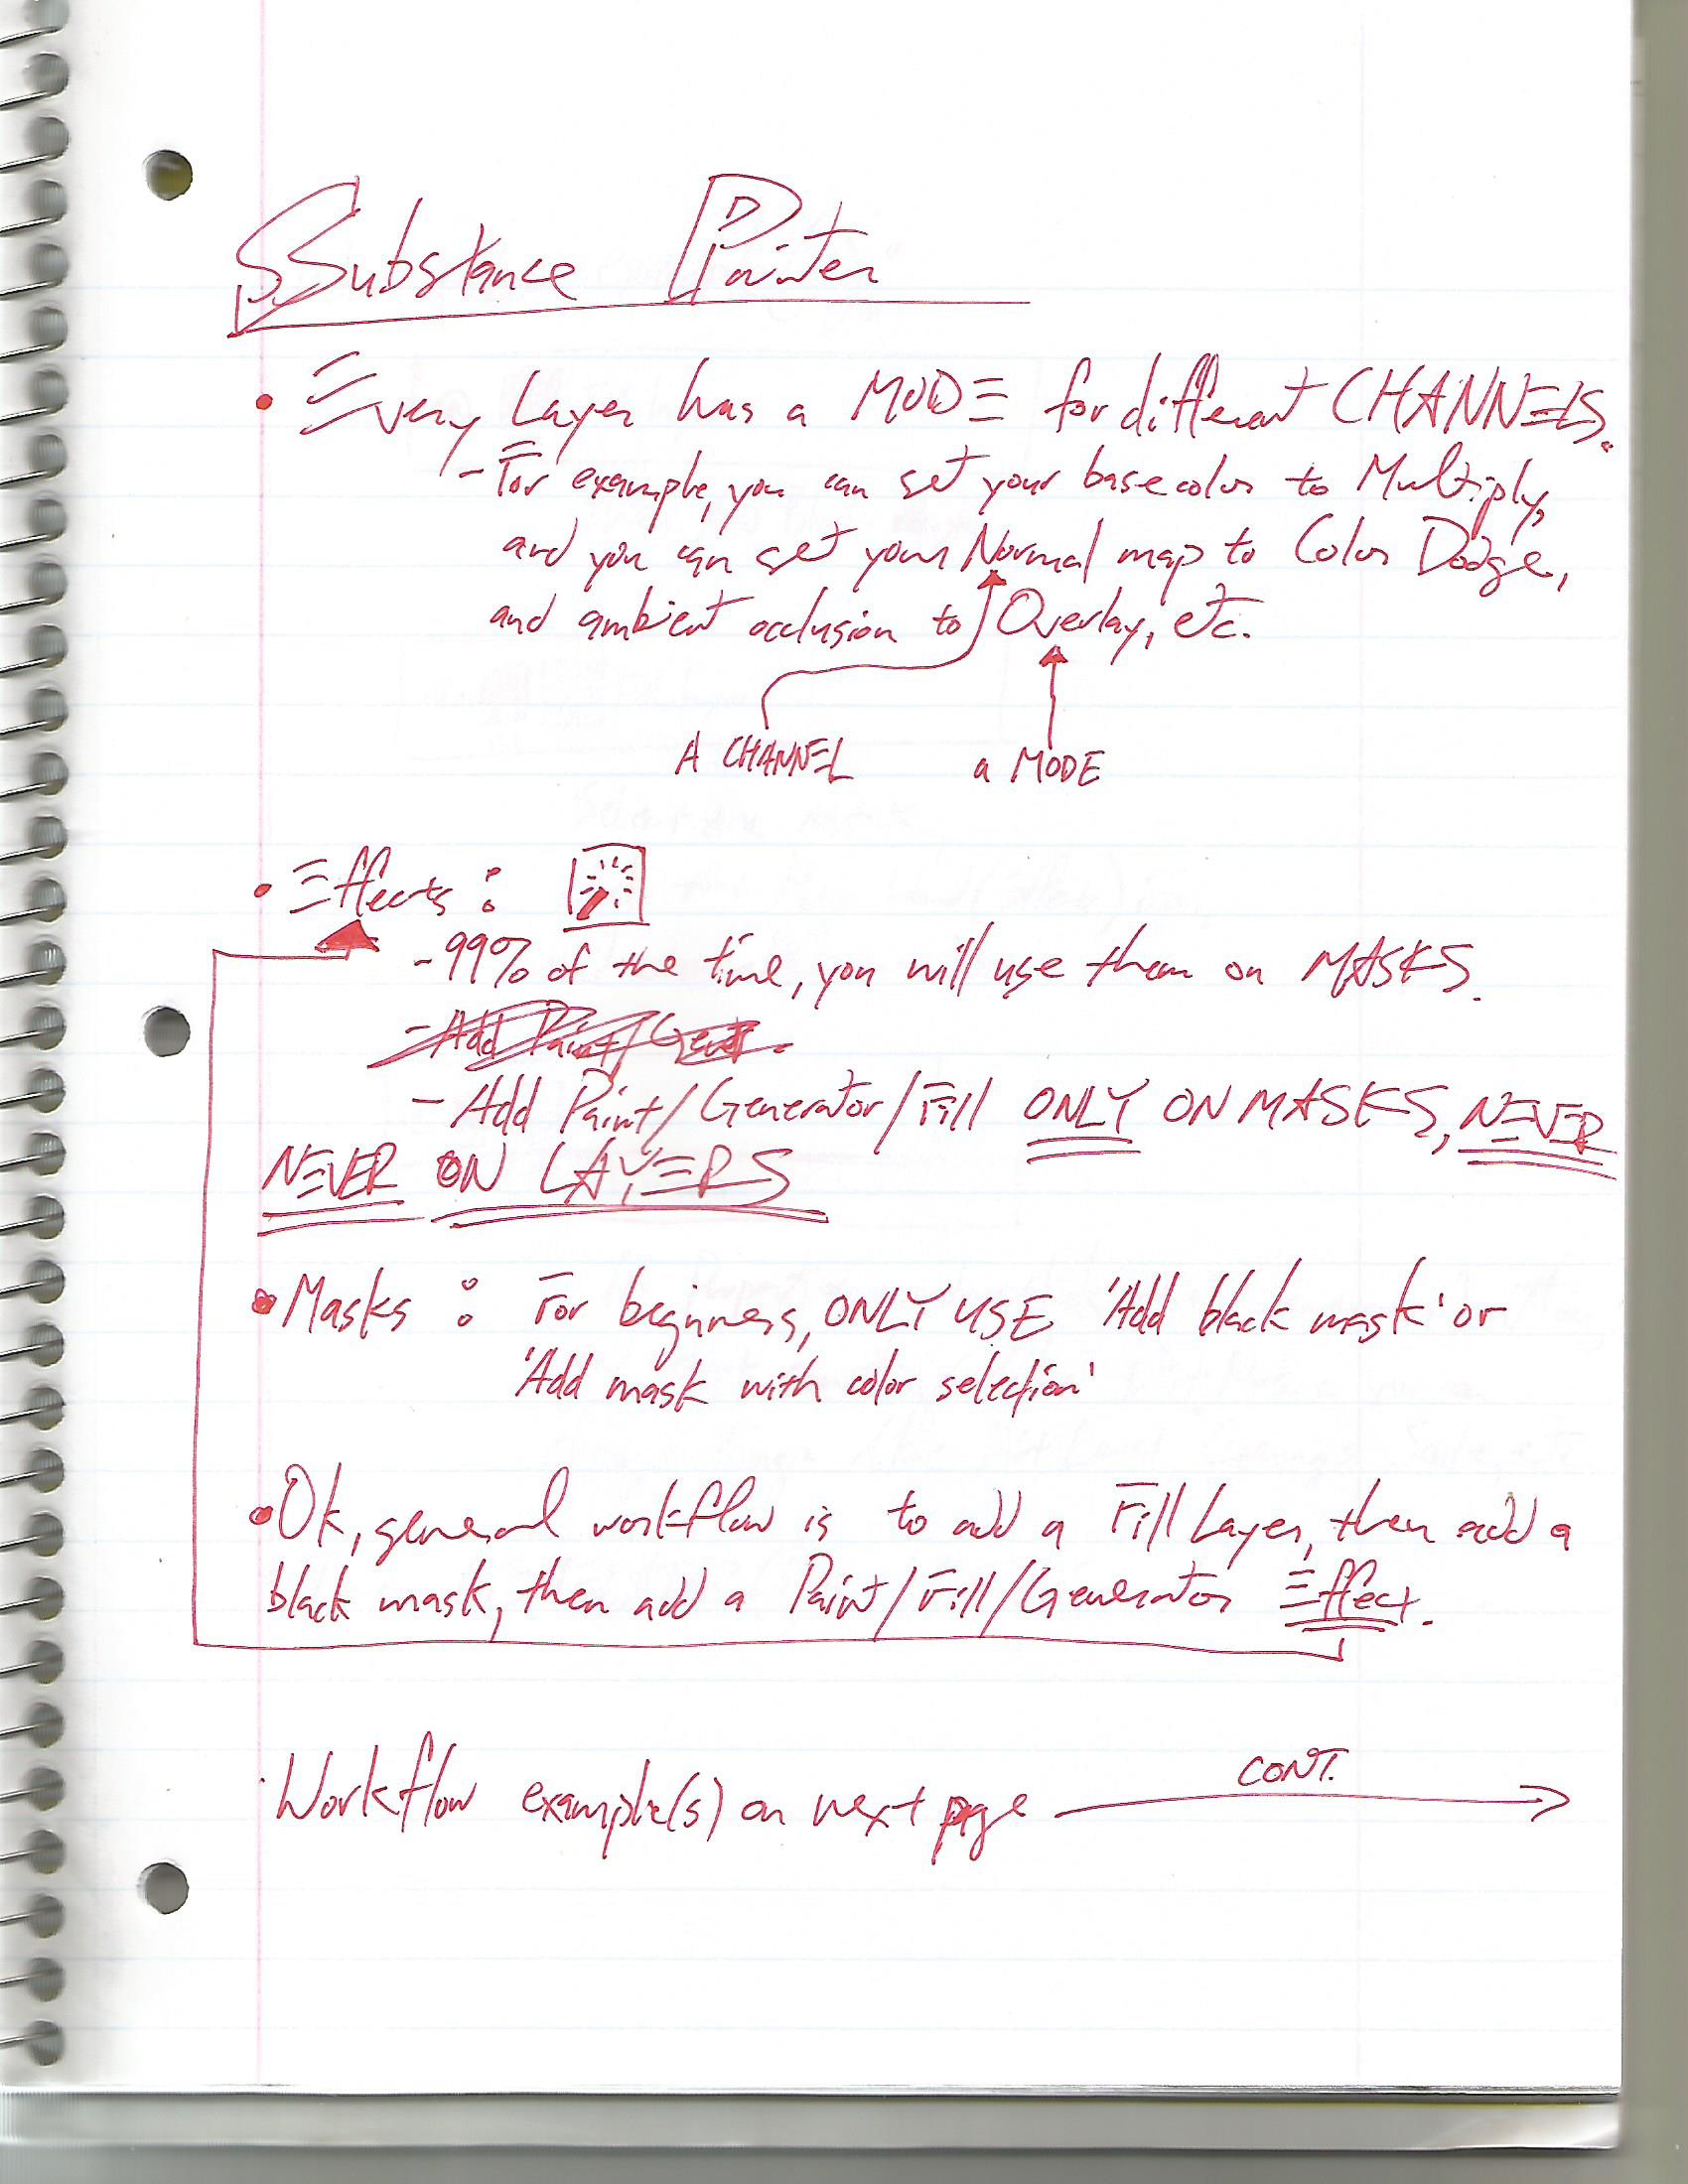 Substance Painter
• Every Layer has a MODE for different CHANNELS.
- For example, you can set your base color to Multiply,
and you can set your Normal map to Color Dodge,
and ambient occlusion to Overlay, etc.
A CHANNEL a MODE
• Effects:
- 99% of the time, you will use them on MASKS.
- Add Paint/Gener
- Add Paint/Generator/Fill ONLY ON MASKS, NEVER
NEVER ON LAYERS
• Masks: For beginners, ONLY USE 'Add black mask' or
'Add mask with color selection'
• Ok, general workflow is to add a Fill Layer, then add a
black mask, then add a Paint/Fill/Generator Effect.
CONT.
Workflow example(s) on next page